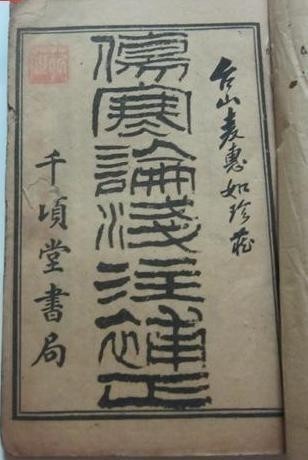 台山麦惠如珍藏
傷寒論淺注補正
千頃堂書局